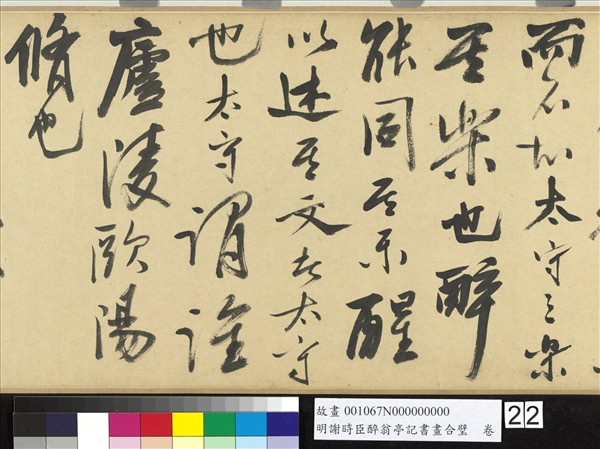 而不知太守之樂
其樂也醉
能同其樂醒
以述其文者太守
也太守謂誰
廬陵歐陽
脩也
故畫 001067N000000000
明謝時臣醉翁亭記書畫合璧 卷
22